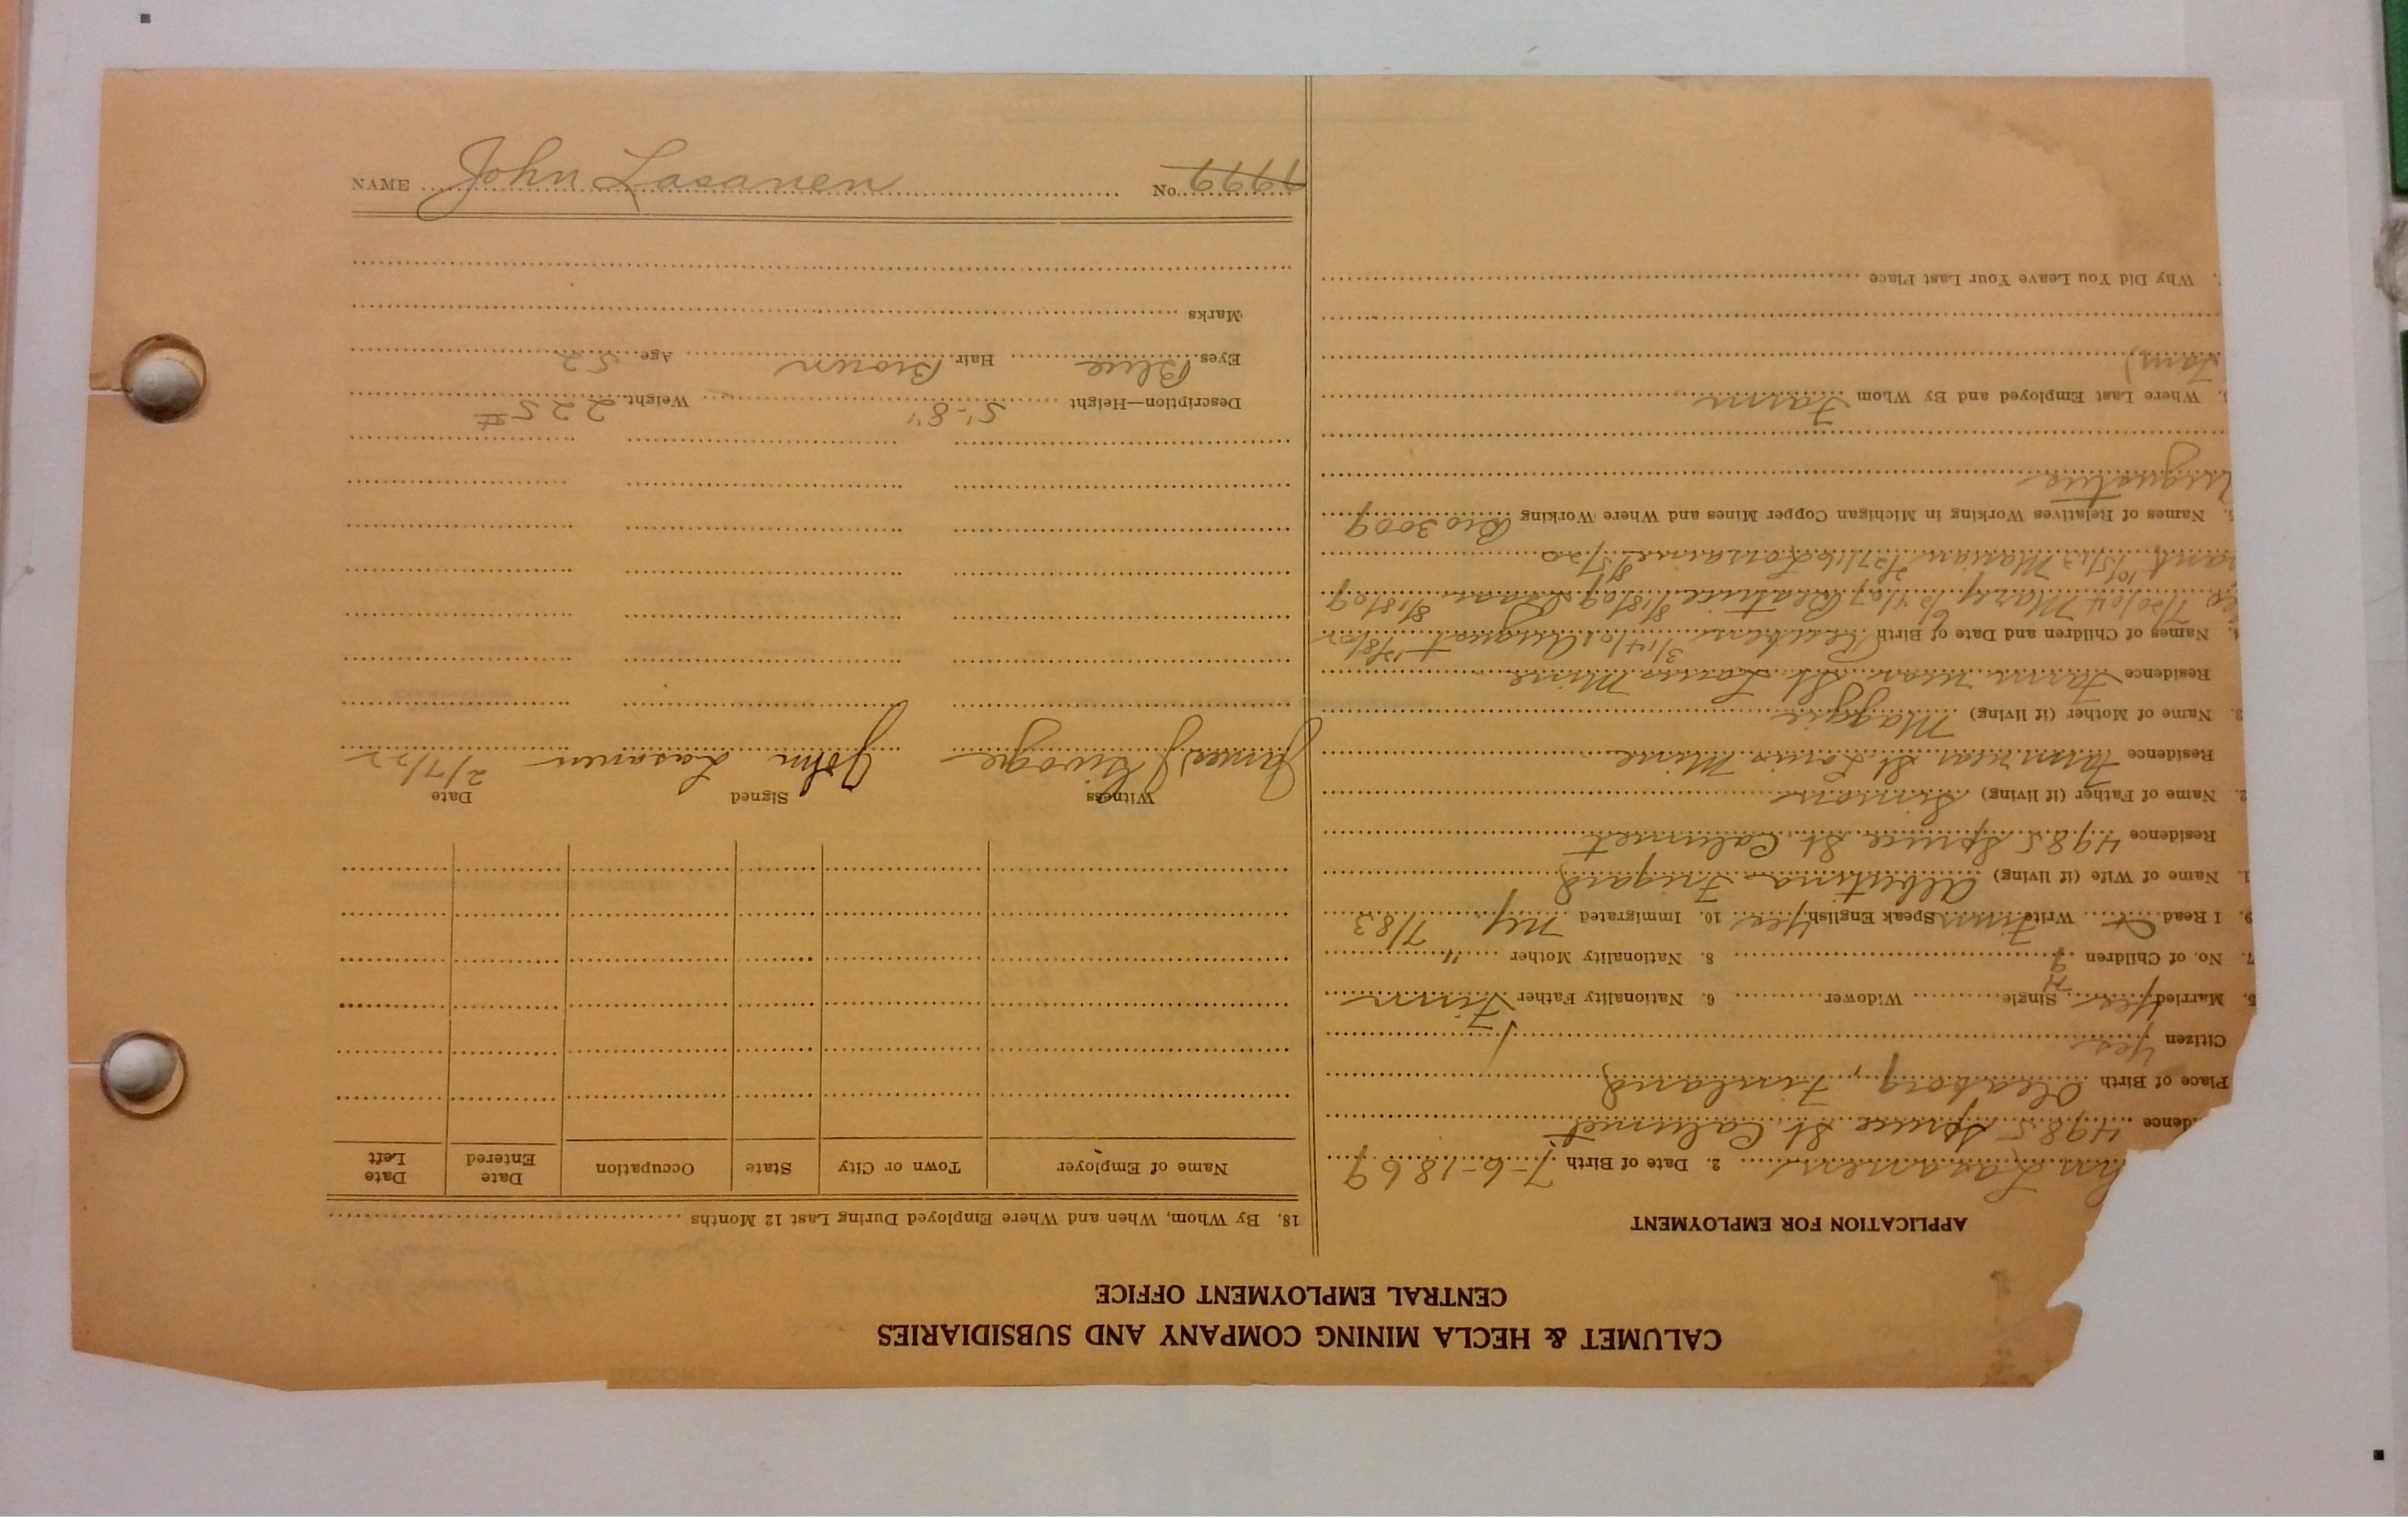 CALUMET & HECLA MINING COMPANY AND SUBSIDIARIES
CENTRAL EMPLOYMENT OFFICE
APPLICATION FOR EMPLOYMENT
hn Lasanen 2. Date of Birth 7-6-1869
dence 4985 Spruce St. Calumet
Place of Birth Oleaborg, Finland
Citizen Yes
5. Married Yes Single Widower 6. Nationality Father Finn
7. No. of Children 9 8. Nationality Mother "
9. I Read Write Finn Speak English Yes 10. Immigrated NY 7/83
1. Name of Wife (if living) Albertina Frigard
Residence 4985 Spruce St. Calumet
2. Name of Father (if living) Simon
Residence Farm near St. Louis Mine
3. Name of Mother (if living) Maggie
Residence Farm near St. Louis Mine
4. Names of Children and Date of Birth 3/14/01 August 12/8/02
7/20/04 Mary 6/24/07 Beatrice 8/18/09 8/18/09
10/5/13 Marian 2/27/16 Lorraine 8/5/20
5. Names of Relatives Working in Michigan Copper Mines and Where Working Bro 3009
Where Last Employed and By Whom Farm
Farm)
Why Did You Leave Your Last Place
18. By Whom, When and Where Employed During Last 12 Months
Name of Employer Town or City State Occupation Date Entered Date Left
Witness Signed Date
James J John Lasanen 2/7/22
Description—Height 5'-8" Weight 225 #
Eyes Blue Hair Brown Age 52
Marks
NAME John Lasanen No. 9999